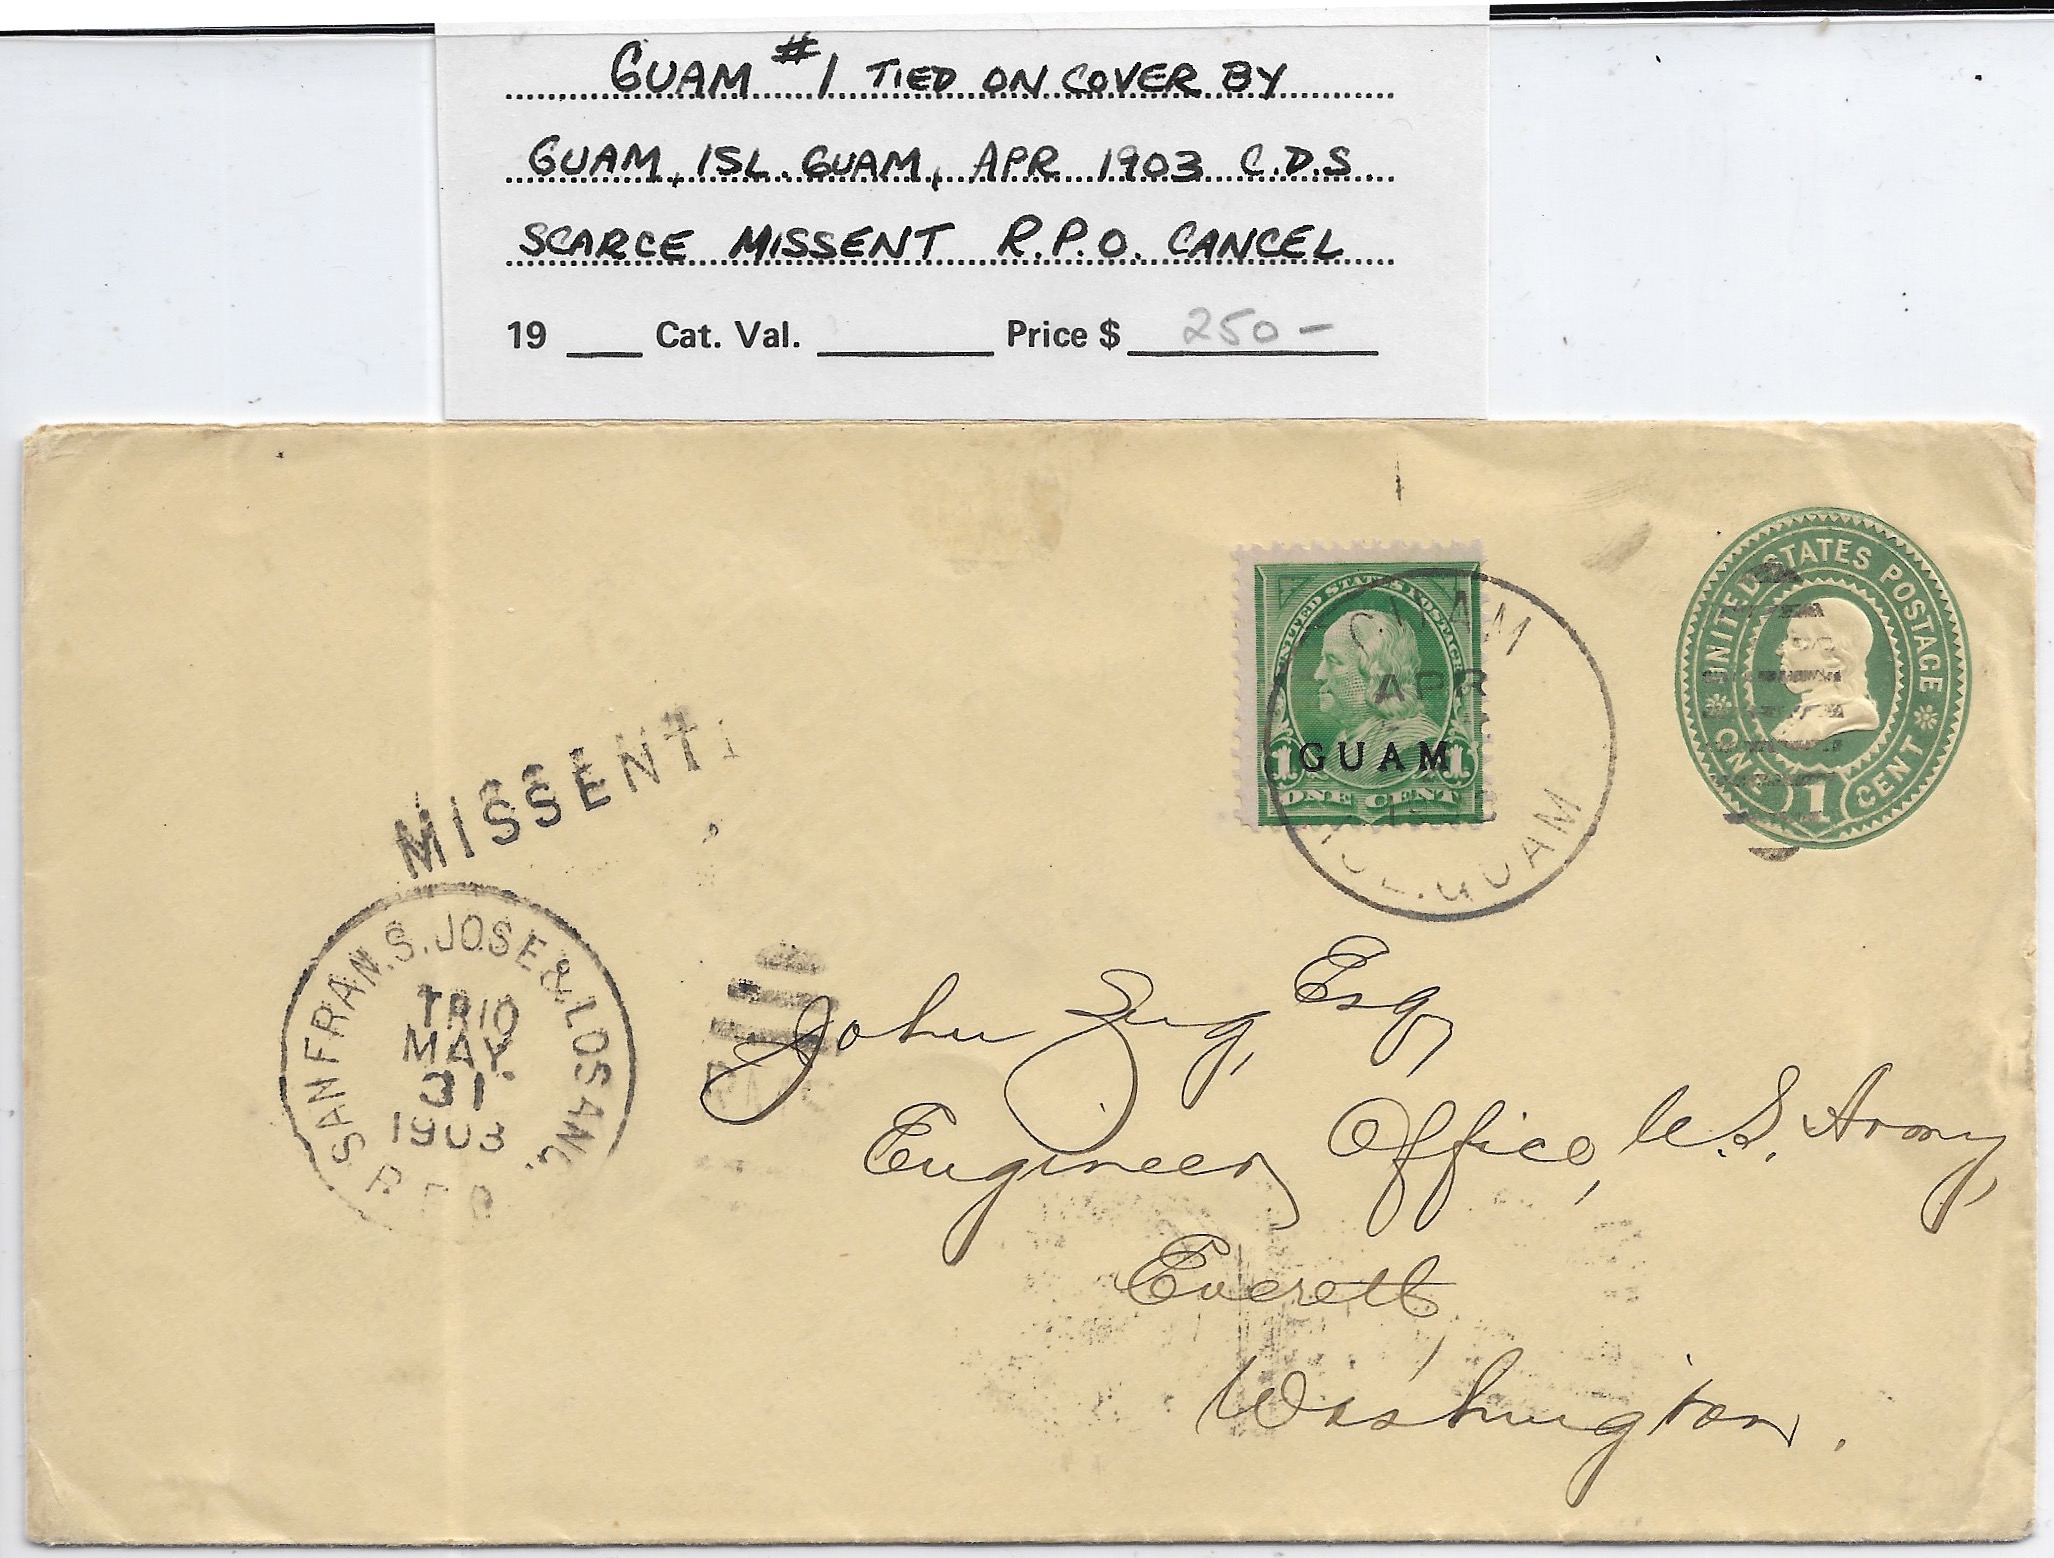 GUAM #1 TIED ON COVER BY
GUAM, ISL. GUAM, APR 1903 C.D.S
SCARCE MISSENT R.P.O. CANCEL
19 ___ Cat. Val. ______ Price $ 250-
UNITED STATES POSTAGE
GUAM
1 1
ONE CENT
GUAM
APR
GUAM
UNITED STATES POSTAGE
ONE 1 CENT
MISSENT
SAN FRAN. S. JOSE & LOS ANG.
TR 10
MAY
31
1903
John Zug, Esq,
Engineer Office, U.S. Army,
Everett,
Washington.